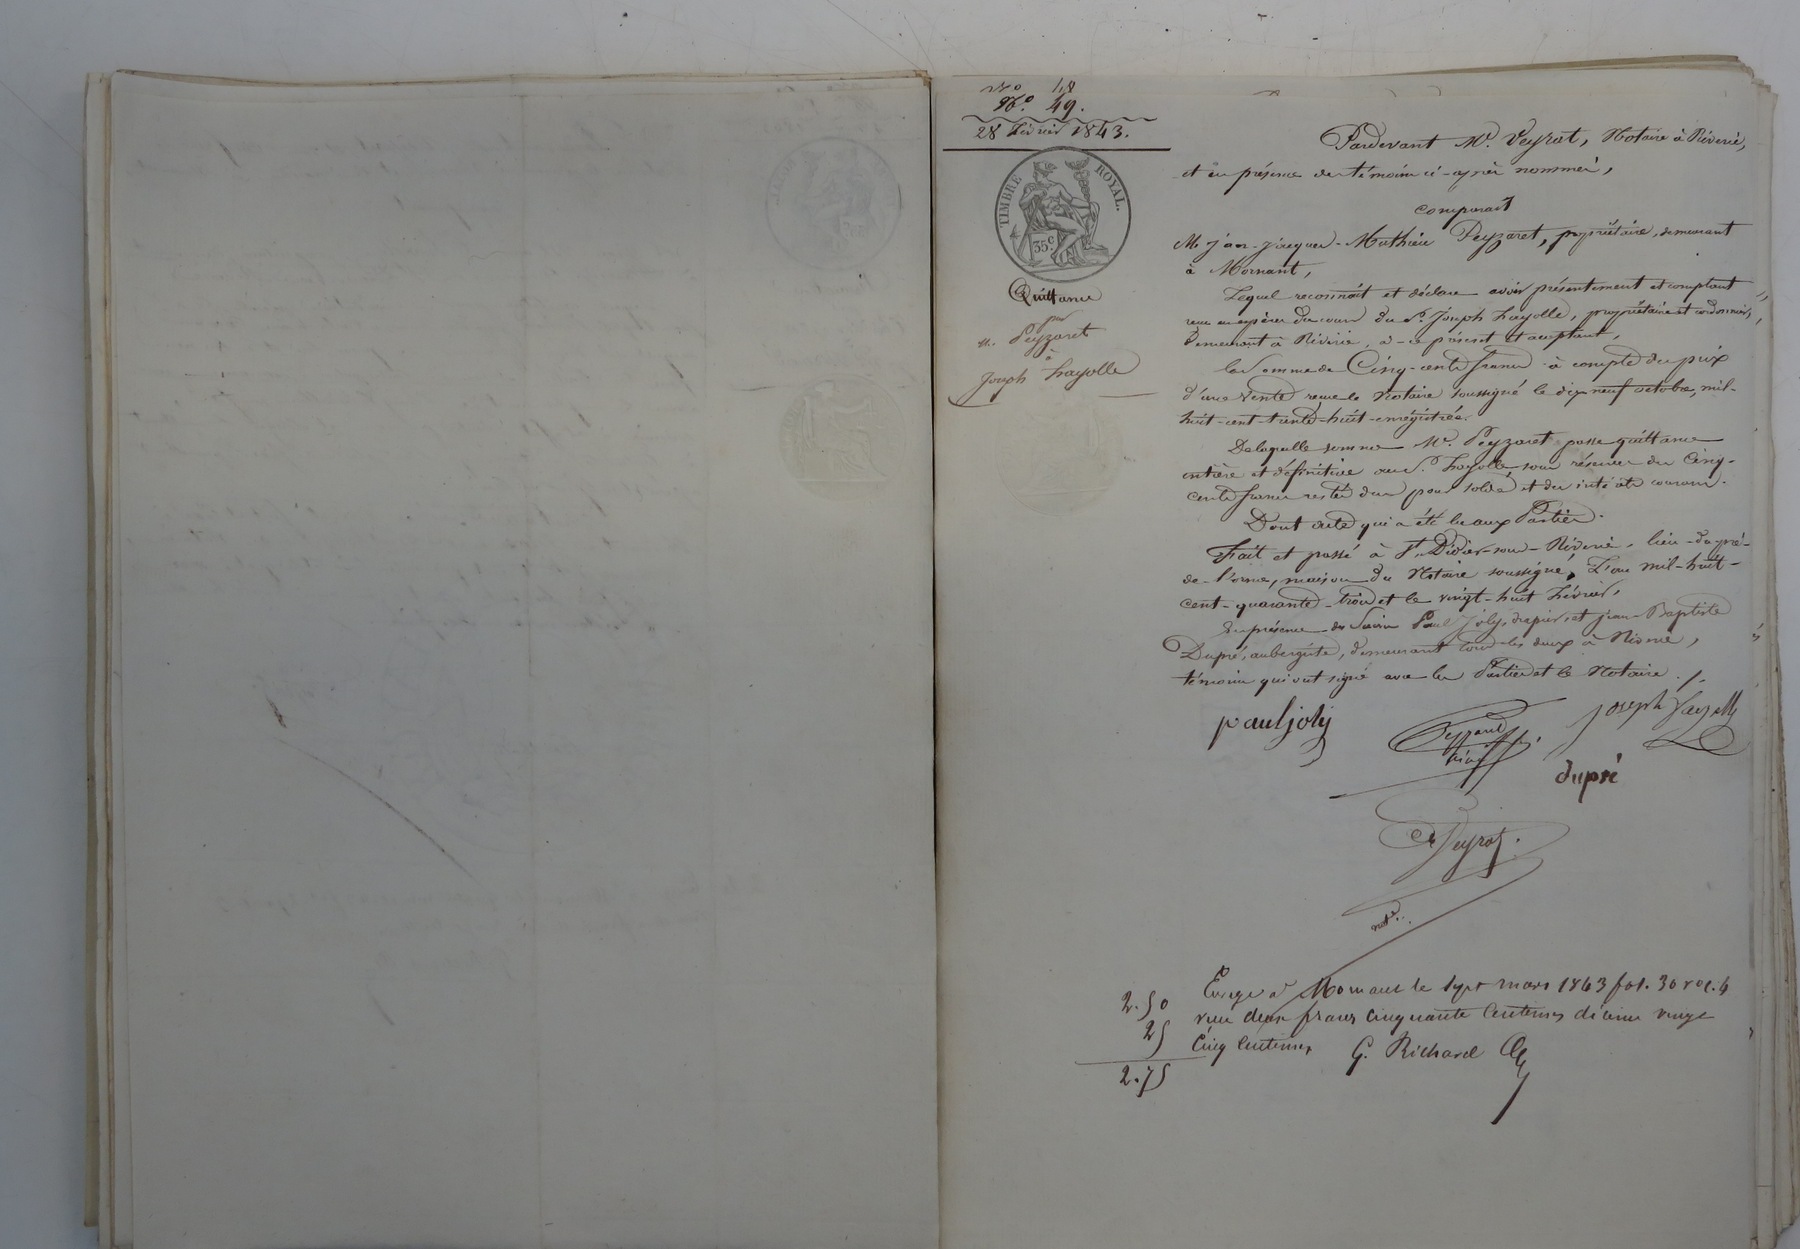 No 48
No. 49.
28 février 1843.
TIMBRE ROYAL.
35 c
Quittance
par
M. Peyzaret
à
Joseph Layolle
Pardevant Me. Veyrat, Notaire à Riverie,
et en présence des témoins ci-après nommés,
comparait
M. Jean-Jacques-Mathieu Peyzaret, propriétaire, demeurant
à Mornant,
Lequel reconnait et déclare avoir présentement et comptant
reçu en espèces du cours du Sr. Joseph Layolle, propriétaire et cordonnier,
demeurant à Riverie, à-ce présent et acceptant,
la somme de Cinq-cents francs à compte du prix
d'une vente reçue le Notaire soussigné le dix neuf octobre, mil-
huit-cent-trente-huit-enregistrée.
De laquelle somme Mr. Peyzaret passe quittance
entière et définitive au Sr. Layolle, sous réserve des Cinq-
cents francs restés dus pour solde et des intérêts courans.
Dont acte qui a été lu aux Parties.
Fait et passé à St. Didier-sous-Riverie, lieu-du pré-
de-, maison du Notaire soussigné, L'an mil-huit-
cent-quarante-trois et le vingt-huit Février,
En présence des Sieurs Paul Joly, drapier, et Jean-Baptiste
Dupré, aubergiste, demeurant tous les deux à Riverie,
témoins qui ont signé avec les Parties et le Notaire ./.
paul joly
Joseph Layolle
dupré
Veyrat.
notre.
2.50
25
2.75
Enregé à Mornant le sept mars 1843 fol. 30 vo c. 4
reçu deux francs cinquante centimes décime vingt
cinq centimes G. Richard